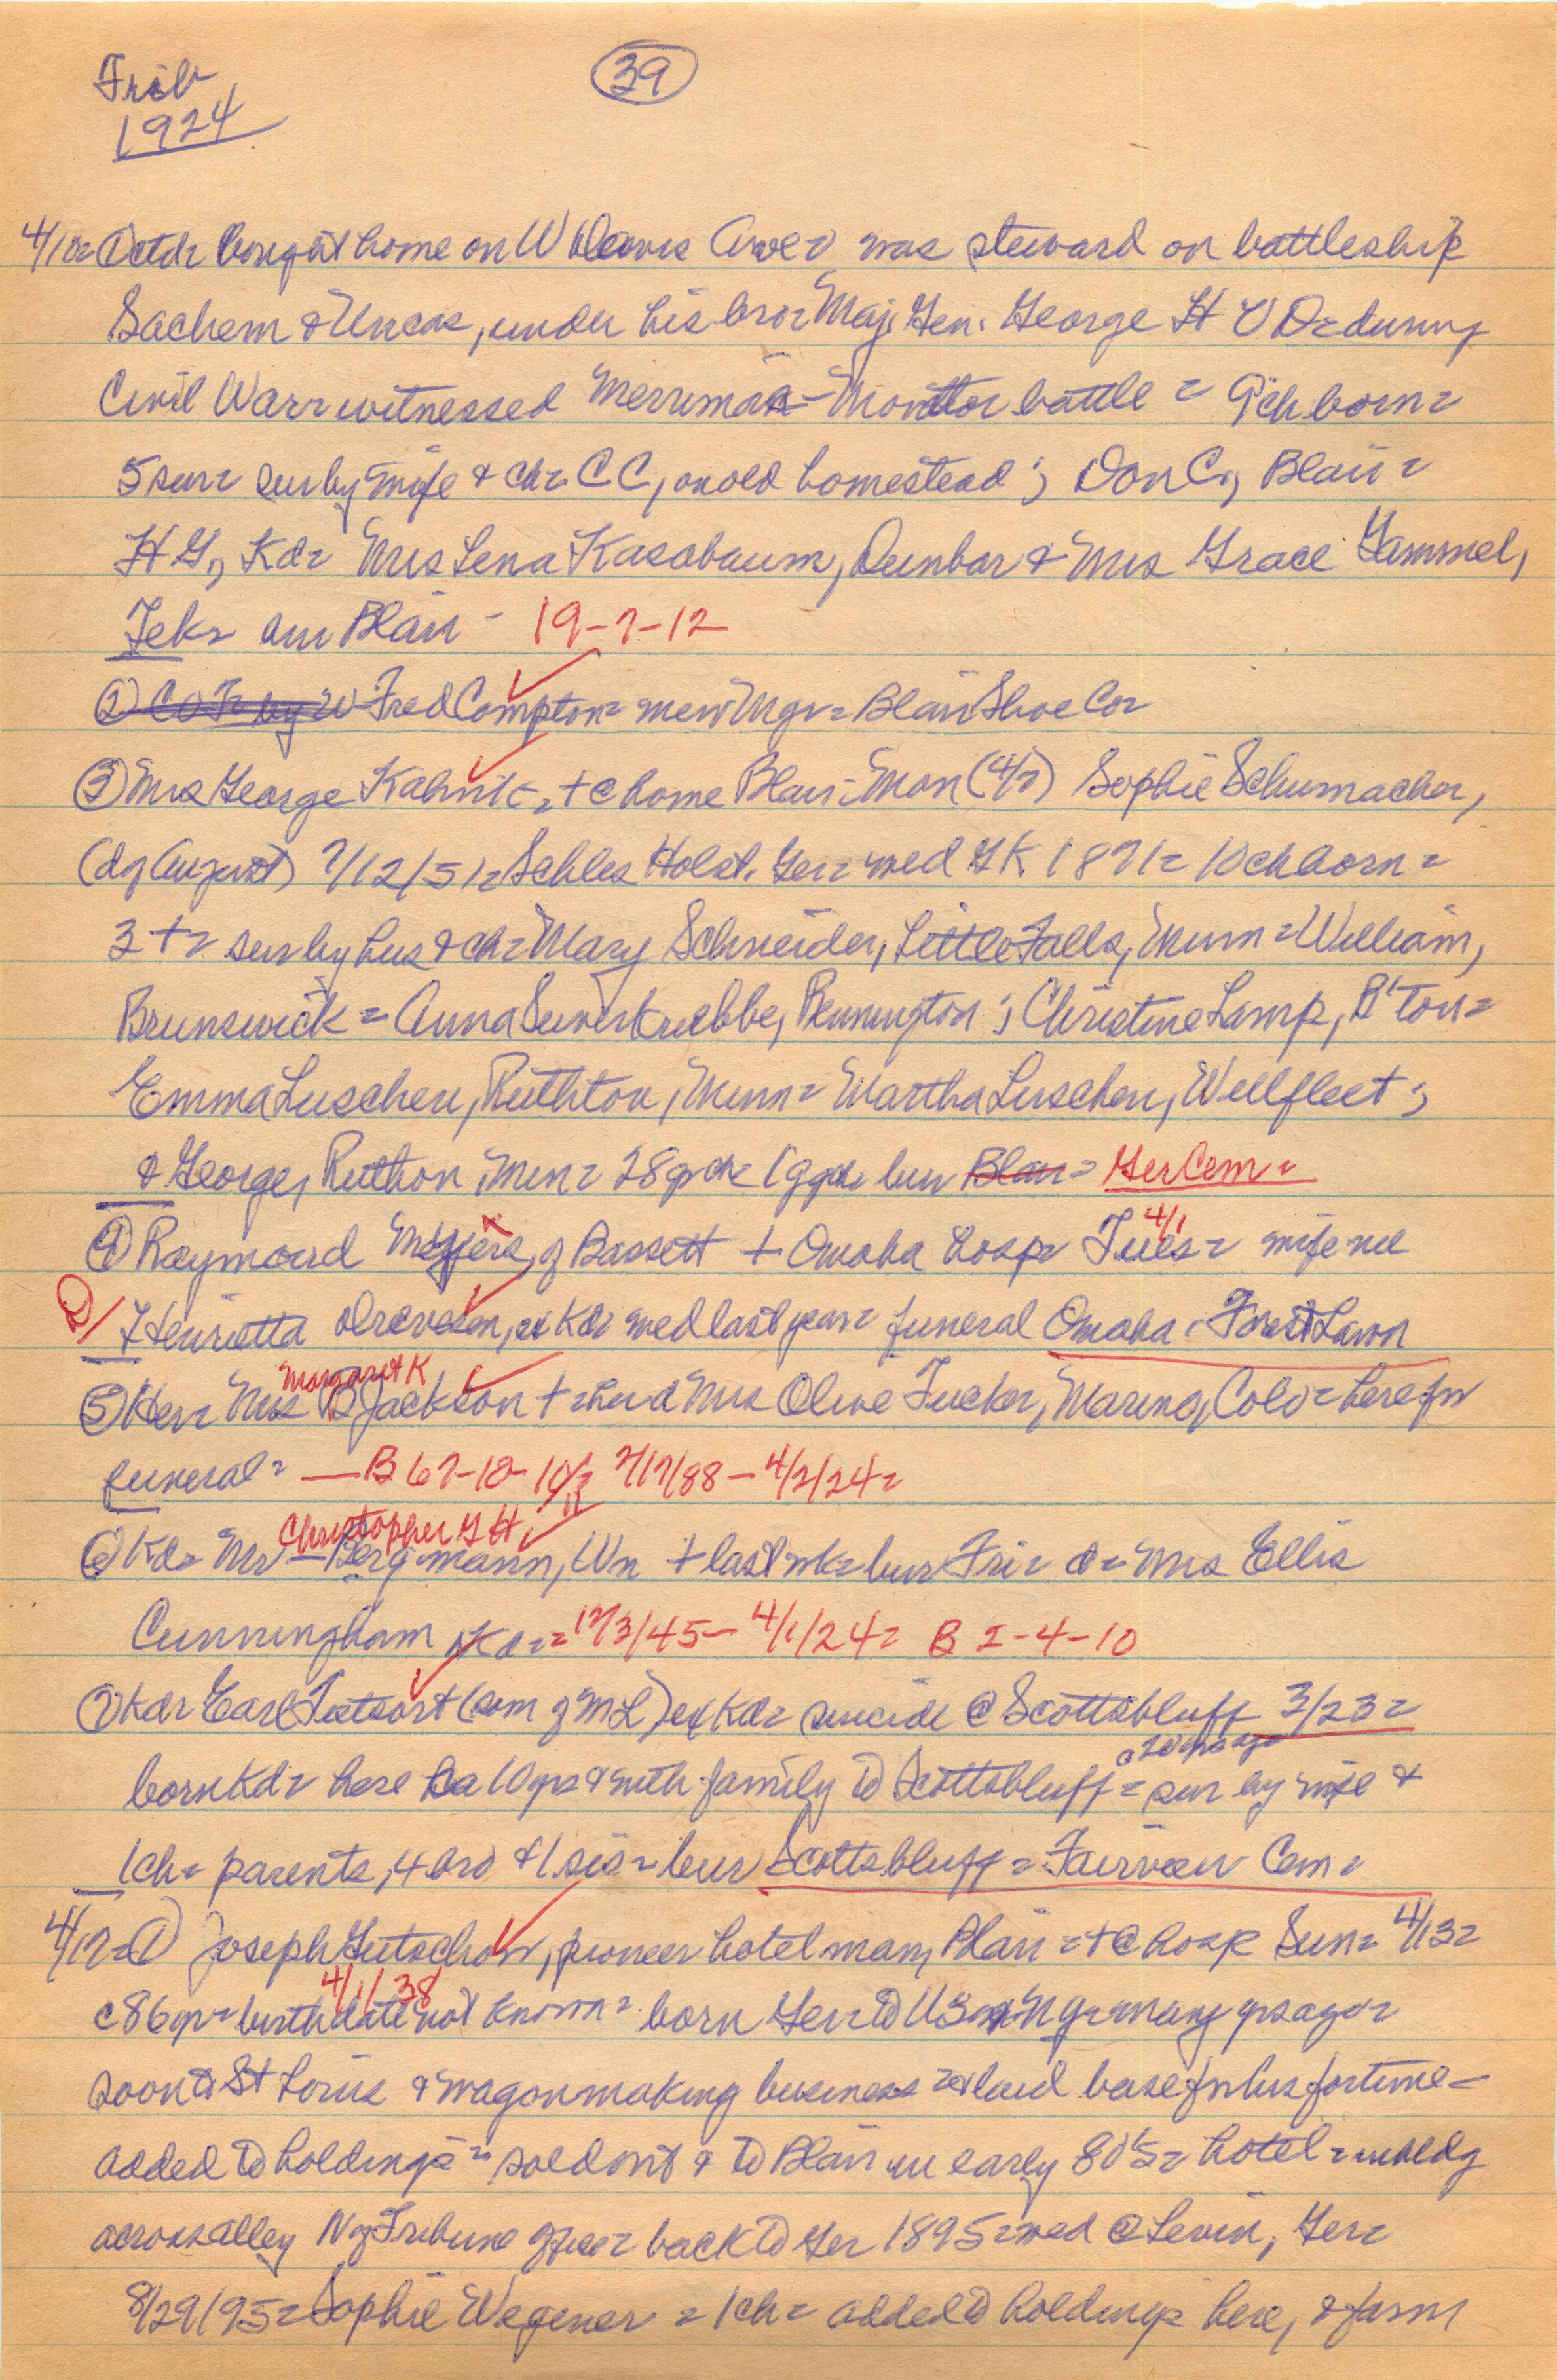 Trib
1924
39
4/10= ①ctd= bought home on W Davis Ave= was steward on battleship
Sachem & Uncas, under his bro= Maj. Gen. George H V D= during
Civil War= witnessed Merrimac-Monitor battle = 9 ch born=
5 sur= sur by wife & ch= C C, on old homestead; Don C, Blair=
H G, Kd= Mrs Lena Kasabaum, Dunbar & Mrs Grace Gammel,
Tek= bur Blair - 19-7-12
② Fred Compton= new Mgr= Blair Shoe Co=
③ Mrs George Kahnk=, + @ home Blair Mon (4/7) Sophie Schumacher,
(d g August) 7/12/51= Schles Holst. Ger= wed G K 1871= 10 ch born=
3 += sur by hus & ch= Mary Schneider, Little Falls, Minn= William,
Brunswick= Anna Suverkruebbe, Bennington; Christine Lamp, B'ton=
Emma Luschen, Ruthton, Minn= Martha Luschen, Wellfleet;
& George, Ruthon, Minn= 28 gch= 1 ggch= bur Blair= Ger Cem=
④ Raymond Meyers, of Bassett + Omaha hosp= Tues= 4/1 wife nee
D/ Henrietta Drevesen, ex Kd= wed last year= funeral Omaha, Forest Lawn
⑤ Her= Mrs B Jackson Margaret K += here Mrs Olive Tucker, Marino, Colo= here for
funeral= — B 67-10-10/= 7/17/88 - 4/2/24=
⑥ Kd= Mr — Bergmann, Christopher G H. Wn + last wk= bur Fri= d= Mrs Ellis
Cunningham, Kd== 12/3/45 - 4/1/24= B I-4-10
⑦ Kd= Earl Tietsort (son g M L) ex Kd= suicide @ Scottsbluff 3/23=
born Kd= here ca 10 yrs & with family to Scottsbluff= c 20 yrs ago sur by wife &
1 ch= parents, 4 bro & 1 sis= bur Scottsbluff= Fairview Cem=
4/17= ① Joseph Gutschow, pioneer hotel man, Blair= + @ hosp Sun= 4/13=
c 86 yr= birth date not known= 4/1/38 born Ger= to U S many yrs ago=
soon to St Louis & wagonmaking business = laid base for his fortune=
added to holdings= sold out & to Blair in early 80's= hotel= in bldg
across alley N g Tribune office= back to Ger 1895= wed @ Levin, Ger=
8/29/95= Sophie Wegener = 1 ch= added to holdings here, & farm